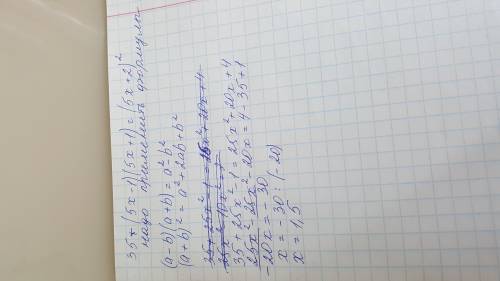 35+(5x-1)(5x+1)=(5x+2)²
надо применить формулы
(a-b)(a+b)=a²-b²
(a+b)²=a²+2ab+b²
35+25x²-1=25x²+20x+4
25x²-25x²-20x=4-35+1
-20x=-30
x=-30:(-20)
x=1,5